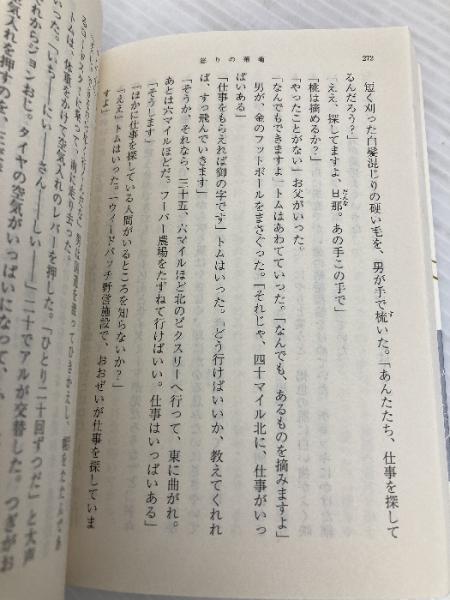 怒りの葡萄
272
短く刈った白髪混じりの硬い毛を、男が手で梳いた。「あんたたち、仕事を探して
るんだろう?」
「ええ、探してますよ、旦那。あの手この手で」
「桃は摘めるか?」
「やったことがない」お父がいった。
「なんでもできますよ」トムはあわてていった。「なんでも、あるものを摘みますよ」
男が、金のフットボールをまさぐった。「それじゃ、四十マイル北に、仕事がいっ
ぱいある」
「仕事をもらえれば御の字です」トムはいった。「どう行けばいいか、教えてくれれ
ば、すっ飛んでいきます」
「そうか、それなら、三十五、六マイルほど北のピクスリーへ行って、東に曲がれ。
あとは六マイルほどだ。フーパー農場をたずねて行けばいい。仕事はいっぱいある」
「そうします」
「ほかに仕事を探している人間がいるところを知らないか?」
「ええ」トムはいった。「ウィードパッチ野営施設で、おおぜいが仕事を探していま
すよ」
男は
に乗って、南に走り去った。
トムは、体重をかけて空気入れのレバーを押した。「ひとり二十回ずつだ」と大声
でいった。「いち——にい——さん、しい——」二十でアルが交替した。つぎがお
れからジョンおじ。タイヤの空気がいっぱいになって、
空気入れを押すのを、三